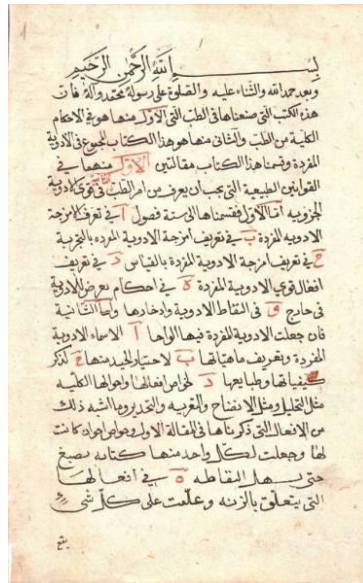 بسم الله الرحمن الرحيم
وبعد حمد الله والثناء عليه والصلوة على رسوله محمد وآله فان
هذه الكتب التي صنعناها في الطب التي الاول منها هو في الاحكام
الكلية من الطب والثاني منها هو هذا الكتاب المجموع في الادوية
المفردة وقسمنا هذا الكتاب مقالتين الاولى منهما في
القوانين الطبيعية التي يجب ان يعرف من امر الطب في قوى الادوية
الجزويه اما الاول فقسمناها الى ستة فصول ا في تعرف امزجة
الادويه المفردة ب في تعريف امزجة الادوية المفرده بالتجربة
ج في تعريف امزجة الادوية المفردة بالقياس د في تعريف
افعال قوى الادوية المفردة ه في احكام يعرض للادوية
في خارج و في التقاط الادوية وادخارها واما الثانية
فان جعلت الادوية المفردة فيها الواحا ا الاسماء الادوية
المفردة وتعريف ماهياتها ب لاختيار الجيد منها ج لذكر
كيفياتها وطبايعها د لخواص افعالها واحوالها الكلية
مثل التحليل ومثل الانضاج والتغرية والتخدير وما اشبه ذلك
من الافعال التي ذكرناها في المقالة الاولى وخواص اخرى ان كانت
لها وجعلت لكل واحد منها كتابه بصبغ
حتى يسهل التقاطه ه في افعالها
التي يتعلق بالزينه وعلمت على كل شي